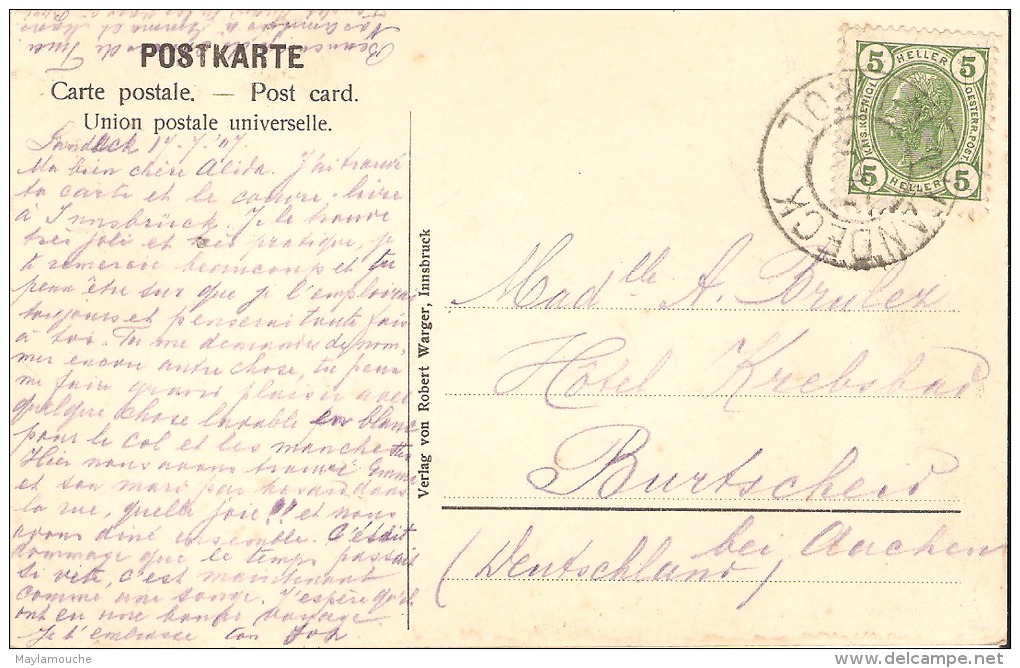 POSTKARTE
Carte postale. — Post card.
Union postale universelle.
Landeck 1 . 7. '07.
Ma bien chère Alida. J'ai trouvé
ta carte et le couvre-livre
à Innsbrück. Je le trouve
très joli et très pratique, je
te remercie beaucoup et tu
peux être sur que je l'emploirai
toujours et penserai toute fois
à toi. Tu me demandes de nom,
mer encore autre chose, tu peux
me faire grand plaisir avec
quelque chose lavable en blanc
pour le col et les manchettes
Hier nous avons trouvé Emma
et son mari par hasard dans
la rue, quelle joie!! et nous
avons diné ensemble. C'était
dommage que le temps passait
si vite, c'est maintenant
comme une songe. J'espère qu'ils
ont eu une bonne voyage
Je t'embrasse ton
Verlag von Robert Warger, Innsbruck
5 HELLER 5
KAIS. KOENIGL. OESTERR. POST.
5 HELLER 5
LANDECK
TIROL
Madlle A. Drulez
Hôtel Krebsbad
Burtscheid
bei Aachen
(Deutschland)
Maylamouche
delcampe.net